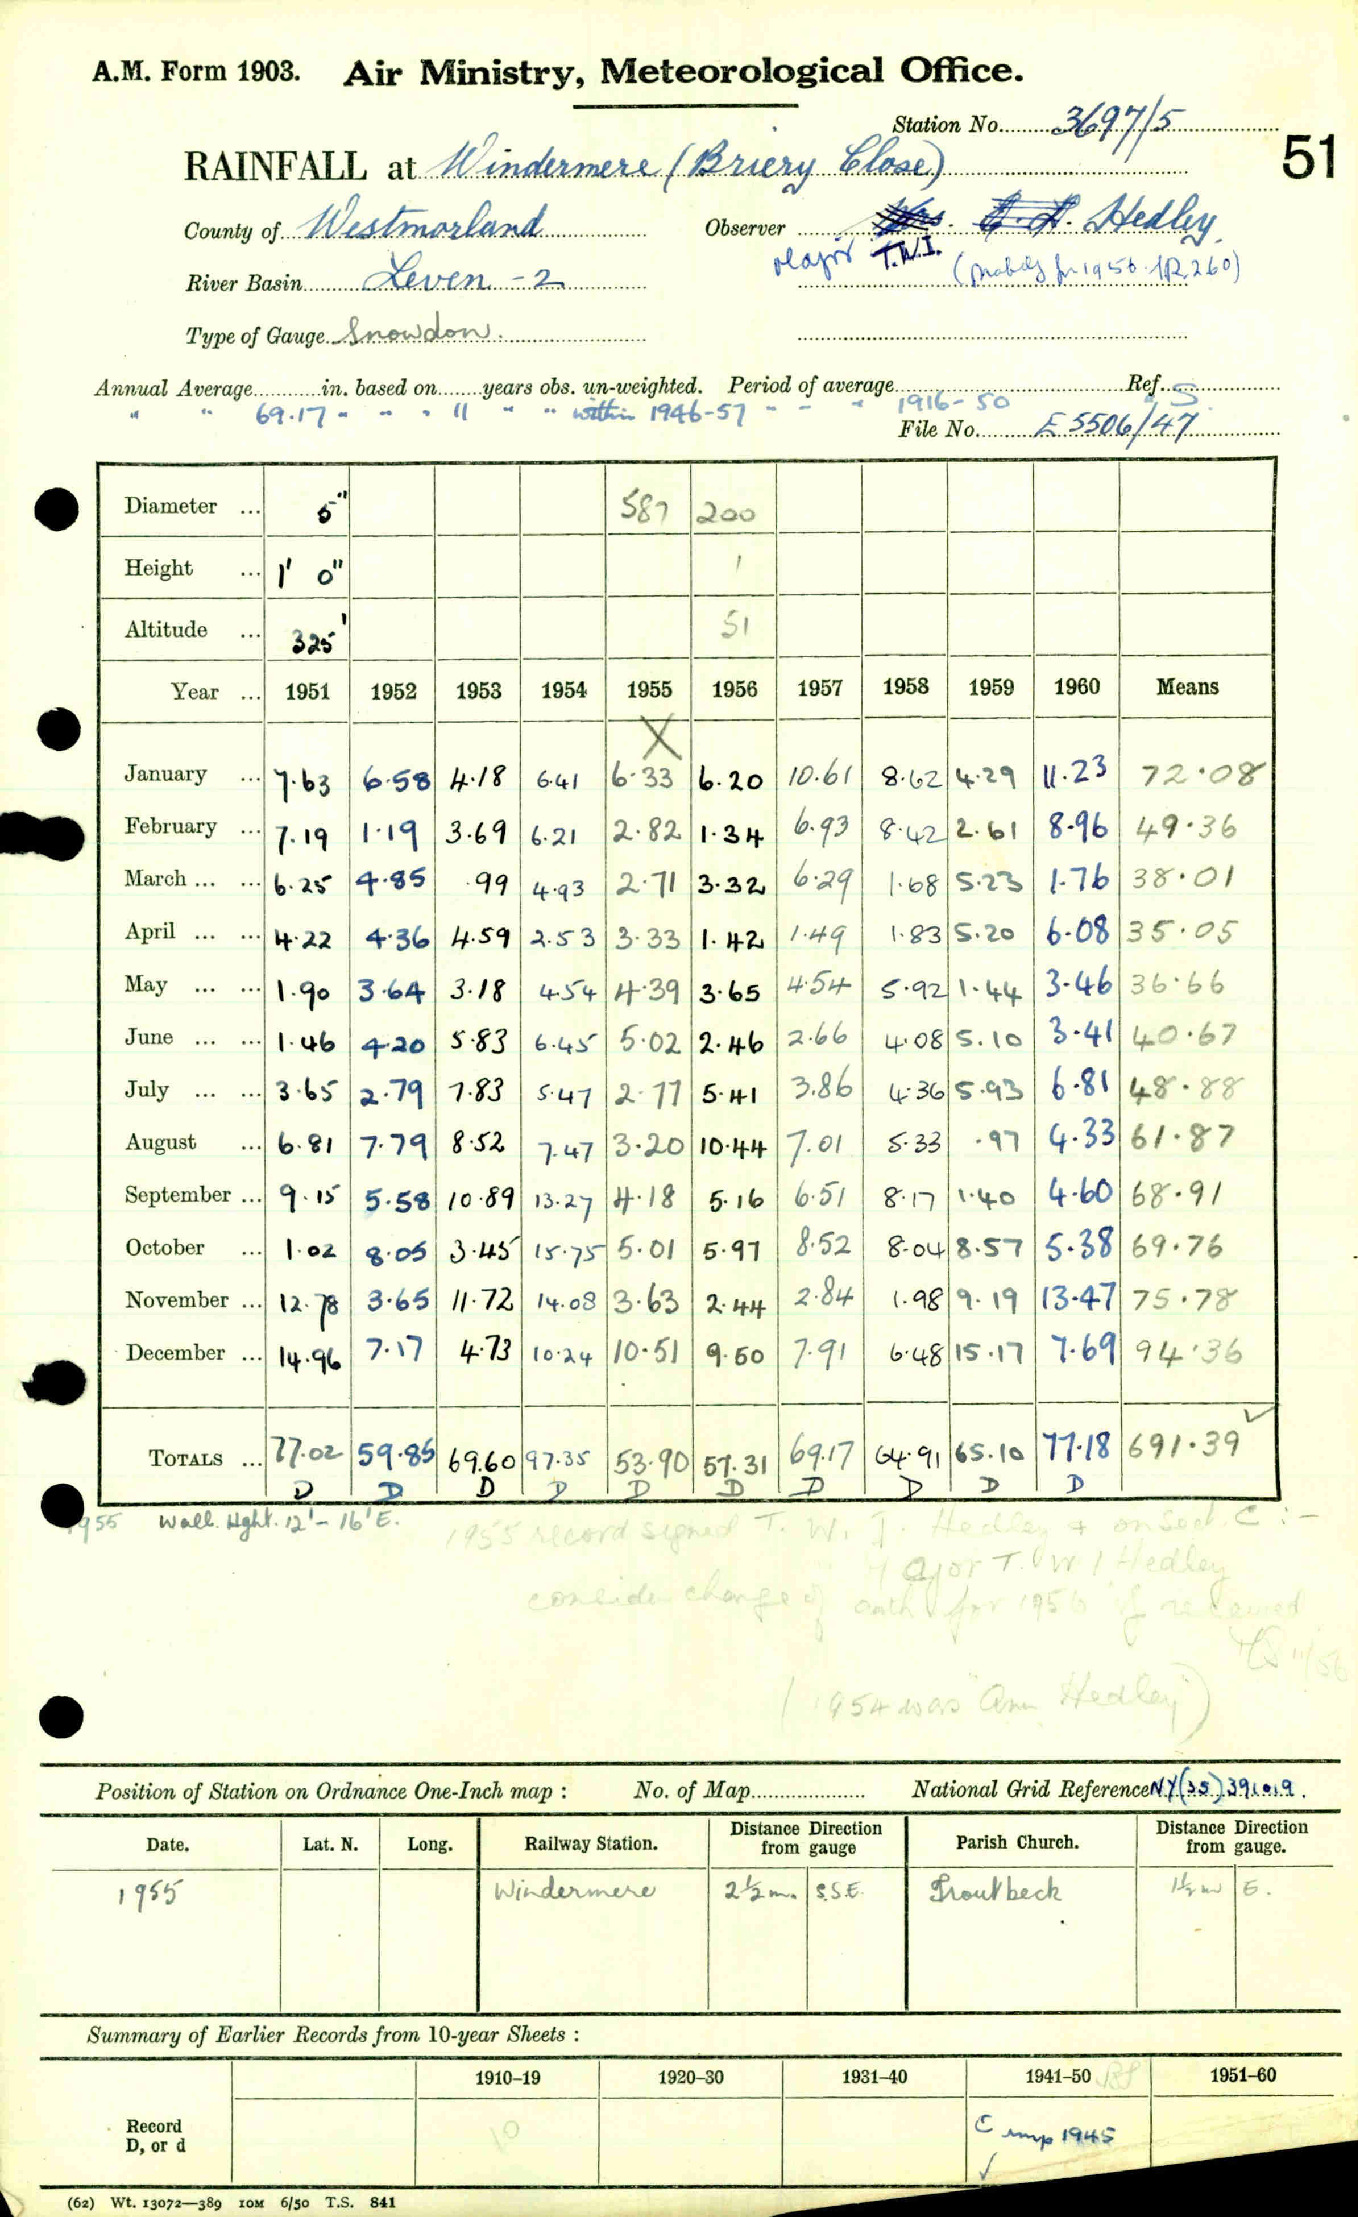 A.M. Form 1903. Air Ministry, Meteorological Office.
Station No. 3697/5
51
RAINFALL at Windermere (Briery Close)
County of Westmorland Observer Mrs. Hedley
Major T.W.I. (probably for 1956. IR.260)
River Basin Leven - 2
Type of Gauge Snowdon.
Annual Average in. based on years obs. un-weighted. Period of average Ref.
" " 69.17 " " " 11 " " within 1946-57 " " " 1916-50 " S.
File No. E 5506/47
Diameter ... 5" 587 200
Height ... 1' 0" 1
Altitude ... 325' 51
Year ... 1951 1952 1953 1954 1955 1956 1957 1958 1959 1960 Means
X
January ... 7.63 6.58 4.18 6.41 6.33 6.20 10.61 8.62 4.29 11.23 72.08
February ... 7.19 1.19 3.69 6.21 2.82 1.34 6.93 8.42 2.61 8.96 49.36
March ... ... 6.25 4.85 .99 4.93 2.71 3.32 6.29 1.68 5.23 1.76 38.01
April ... ... 4.22 4.36 4.59 2.53 3.33 1.42 1.49 1.83 5.20 6.08 35.05
May ... ... 1.90 3.64 3.18 4.54 4.39 3.65 4.54 5.92 1.44 3.46 36.66
June ... ... 1.46 4.20 5.83 6.45 5.02 2.46 2.66 4.08 5.10 3.41 40.67
July ... ... 3.65 2.79 7.83 5.47 2.77 5.41 3.86 4.36 5.93 6.81 48.88
August ... 6.81 7.79 8.52 7.47 3.20 10.44 7.01 5.33 .97 4.33 61.87
September ... 9.15 5.58 10.89 13.27 4.18 5.16 6.51 8.17 1.40 4.60 68.91
October ... 1.02 8.05 3.45 15.75 5.01 5.97 8.52 8.04 8.57 5.38 69.76
November ... 12.78 3.65 11.72 14.08 3.63 2.44 2.84 1.98 9.19 13.47 75.78
December ... 14.96 7.17 4.73 10.24 10.51 9.50 7.91 6.48 15.17 7.69 94.36
TOTALS ... 77.02 59.85 69.60 97.35 53.90 57.31 69.17 64.91 65.10 77.18 691.39 ✓
D D D D D D D D D D
1955 Wall. Hght. 12' - 16' E.
1955 record signed T. W. I. Hedley & on Sect. C :-
Major T. W. I Hedley
consider change of auth for 1956 if received
11/56
(1954 was "Ann Hedley")
Position of Station on Ordnance One-Inch map : No. of Map National Grid Reference NY(35)391019.
Date. Lat. N. Long. Railway Station. Distance from Direction gauge Parish Church. Distance from Direction gauge.
1955 Windermere 2½ m. S.S.E. Troutbeck 1½ m E.
Summary of Earlier Records from 10-year Sheets :
1910–19 1920–30 1931–40 1941–50 1951–60
Record
D, or d
10
C incp 1945
✓
(62) Wt. 13072—389 10M 6/50 T.S. 841